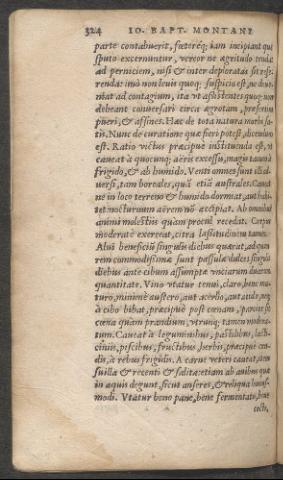 324 IO. BAPT. MONTANI
parte contabuerit, fœteréq; iam incipiant quæ
sputo excernuntur, vereor ne ægritudo tendat
ad perniciem, nisi & inter deploratas sit refe-
renda: imò non leuis quoq; suspicio est, ne deue-
niat ad contagium, ita vt assistentes quoq; non
debeant conuersari circa ægrotam, præsertim
pueri, & affines. Hæc de tota natura morbi sa-
tis. Nunc de curatione quæ fieri potest, dicendum
est. Ratio victus præcipuè instituenda est, vt
caueat à quocunq; aëris excessu, magis tamen à
frigido, & ab humido. Venti omnes sunt illi ad-
uersi, tam boreales, quã etiã australes. Caueat
ne in loco terreno & humido dormiat, aut habi-
tet nocturnum aërem nõ accipiat. Ab omnibus
animi molestiis quàm procul recedat. Corpus
moderatè exerceat, citra lassitudinem tamen.
Alui beneficiũ singulis diebus quærat, ad quam
rem commodissimæ sunt passulæ dulces singulis
diebus ante cibum assumptæ vnciarum duarum
quantitate. Vino vtatur tenui, claro, bene ma-
turo, minimè austero, aut acerbo, aut acido, neq;
à cibo bibat, præcipuè post cœnam, parcior sit
cœna quàm prandium, vtrunq; tamen modera-
tum. Caueat à leguminibus, pastillibus, lacti-
ciniis, piscibus, fructibus, herbis, præcipuè cru-
dis, à rebus frigidis. A carne veteri caueat, item
suilla & recenti & salita: etiam ab auibus quæ
in aquis degunt, sicut anseres, & reliqua huius-
modi. Vtatur bono pane, bene fermentato, bene
cocto,